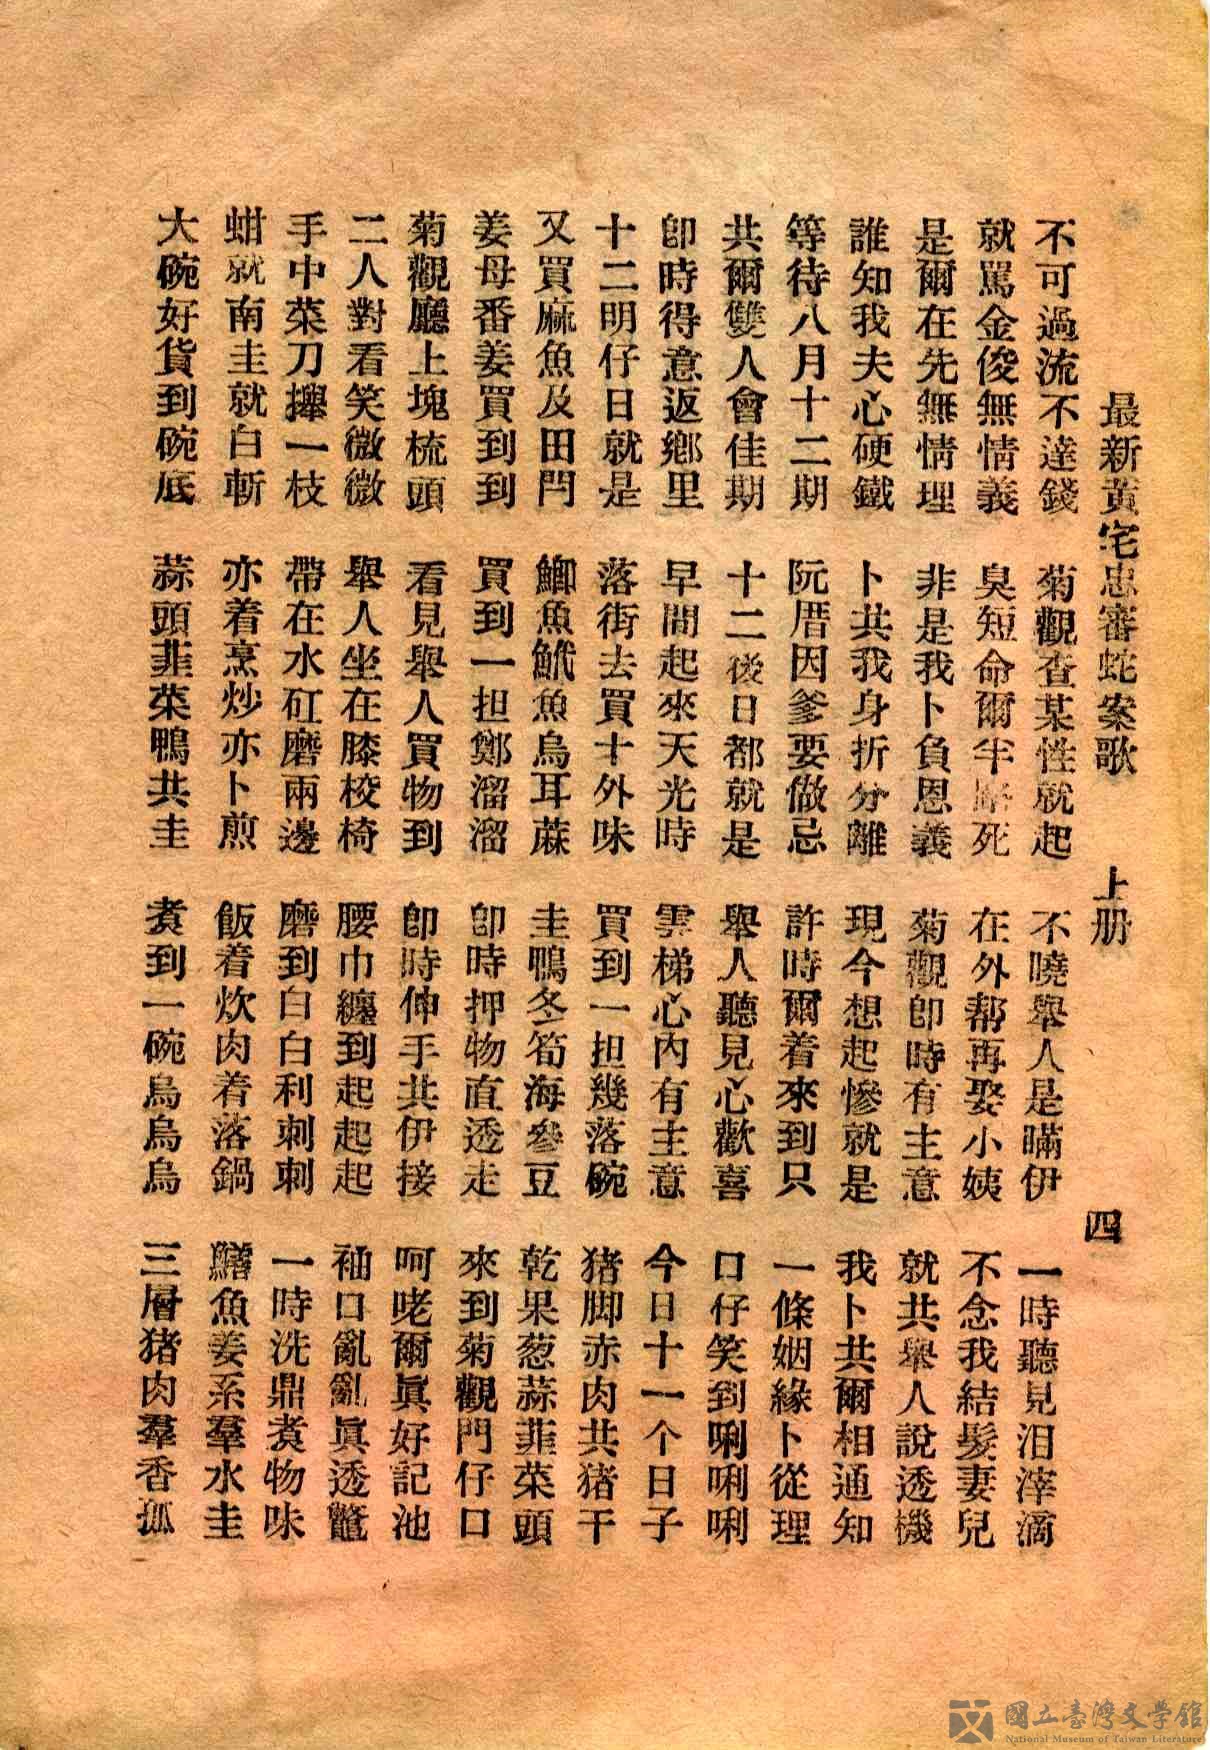 最新黃宅忠審蛇案歌 上册 四
不可過流不達錢 菊觀查某性就起 不曉舉人是瞞伊 一時聽見泪滓滴
就罵金俊無情義 臭短命爾半路死 在外帮再娶小姨 不念我結髮妻兒
是爾在先無情理 非是我卜負恩義 菊觀卽時有主意 就共舉人說透機
誰知我夫心硬鐵 卜共我身折分離 現今想起慘就是 我卜共爾相通知
等待八月十二期 阮厝因爹要做忌 許時爾着來到只 一條姻緣卜從理
共爾雙人會佳期 十二後日都就是 舉人聽見心歡喜 口仔笑到唎唎唎
卽時得意返鄉里 早間起來天光時 雲梯心內有主意 今日十一个日子
十二明仔日就是 落街去買十外味 買到一担幾落碗 猪脚赤肉共猪干
又買麻魚及田閂 鯽魚魷魚烏耳蔴 圭鴨冬筍海參豆 乾果葱蒜韮菜頭
姜母番姜買到到 買到一担鄭溜溜 卽時押物直透走 來到菊觀門仔口
菊觀廳上塊梳頭 看見舉人買物到 卽時伸手共伊接 呵咾爾眞好記池
二人對看笑微微 舉人坐在膝校椅 腰巾纏到起起起 袖口亂亂眞透鼈
手中菜刀攑一枝 帶在水矼磨兩邊 磨到白白利刺刺 一時洗鼎煑物味
蚶就南圭就白斬 亦着烹炒亦卜煎 飯着炊肉着落鍋 鱔魚姜系羣水圭
大碗好貨到碗底 蒜頭韮菜鴨共圭 煑到一碗烏烏烏 三層猪肉羣香孤
國立臺灣文學館
National Museum of Taiwan Literature